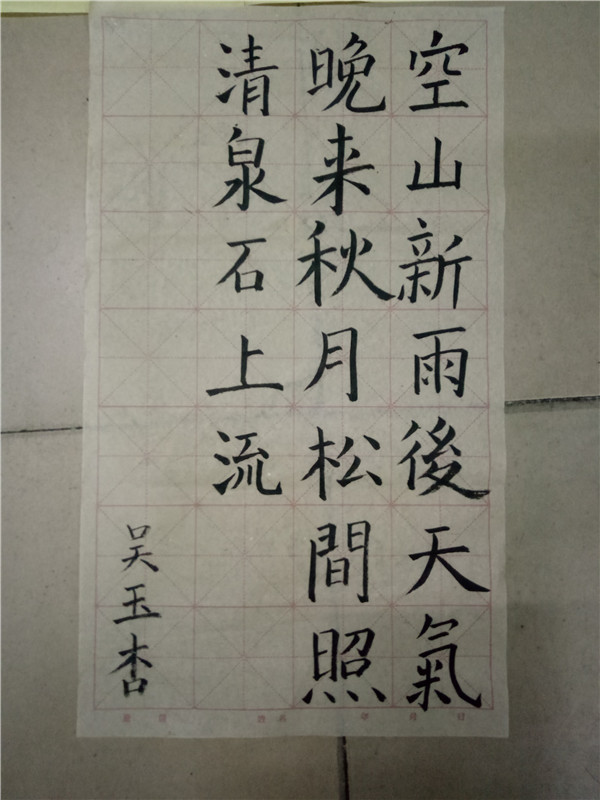 空山新雨後天氣
晚来秋月松間照
清泉石上流
吴玉杏